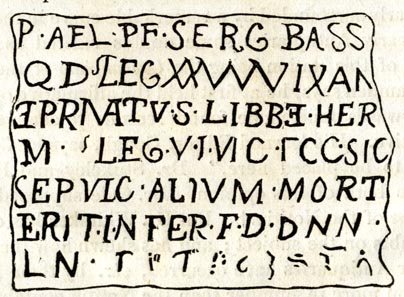 P·AEL·PF·SERG BASS
Q D·LEG XX VV VIXAN
ƎP·RIVATVS·LIBBƎ·HER
M· LEG·VI·VIC·ΓCC·SIC
SEPVLC·ALIVM·MORT
ERIT·I·NFER·F·D·DNN·
LN·T